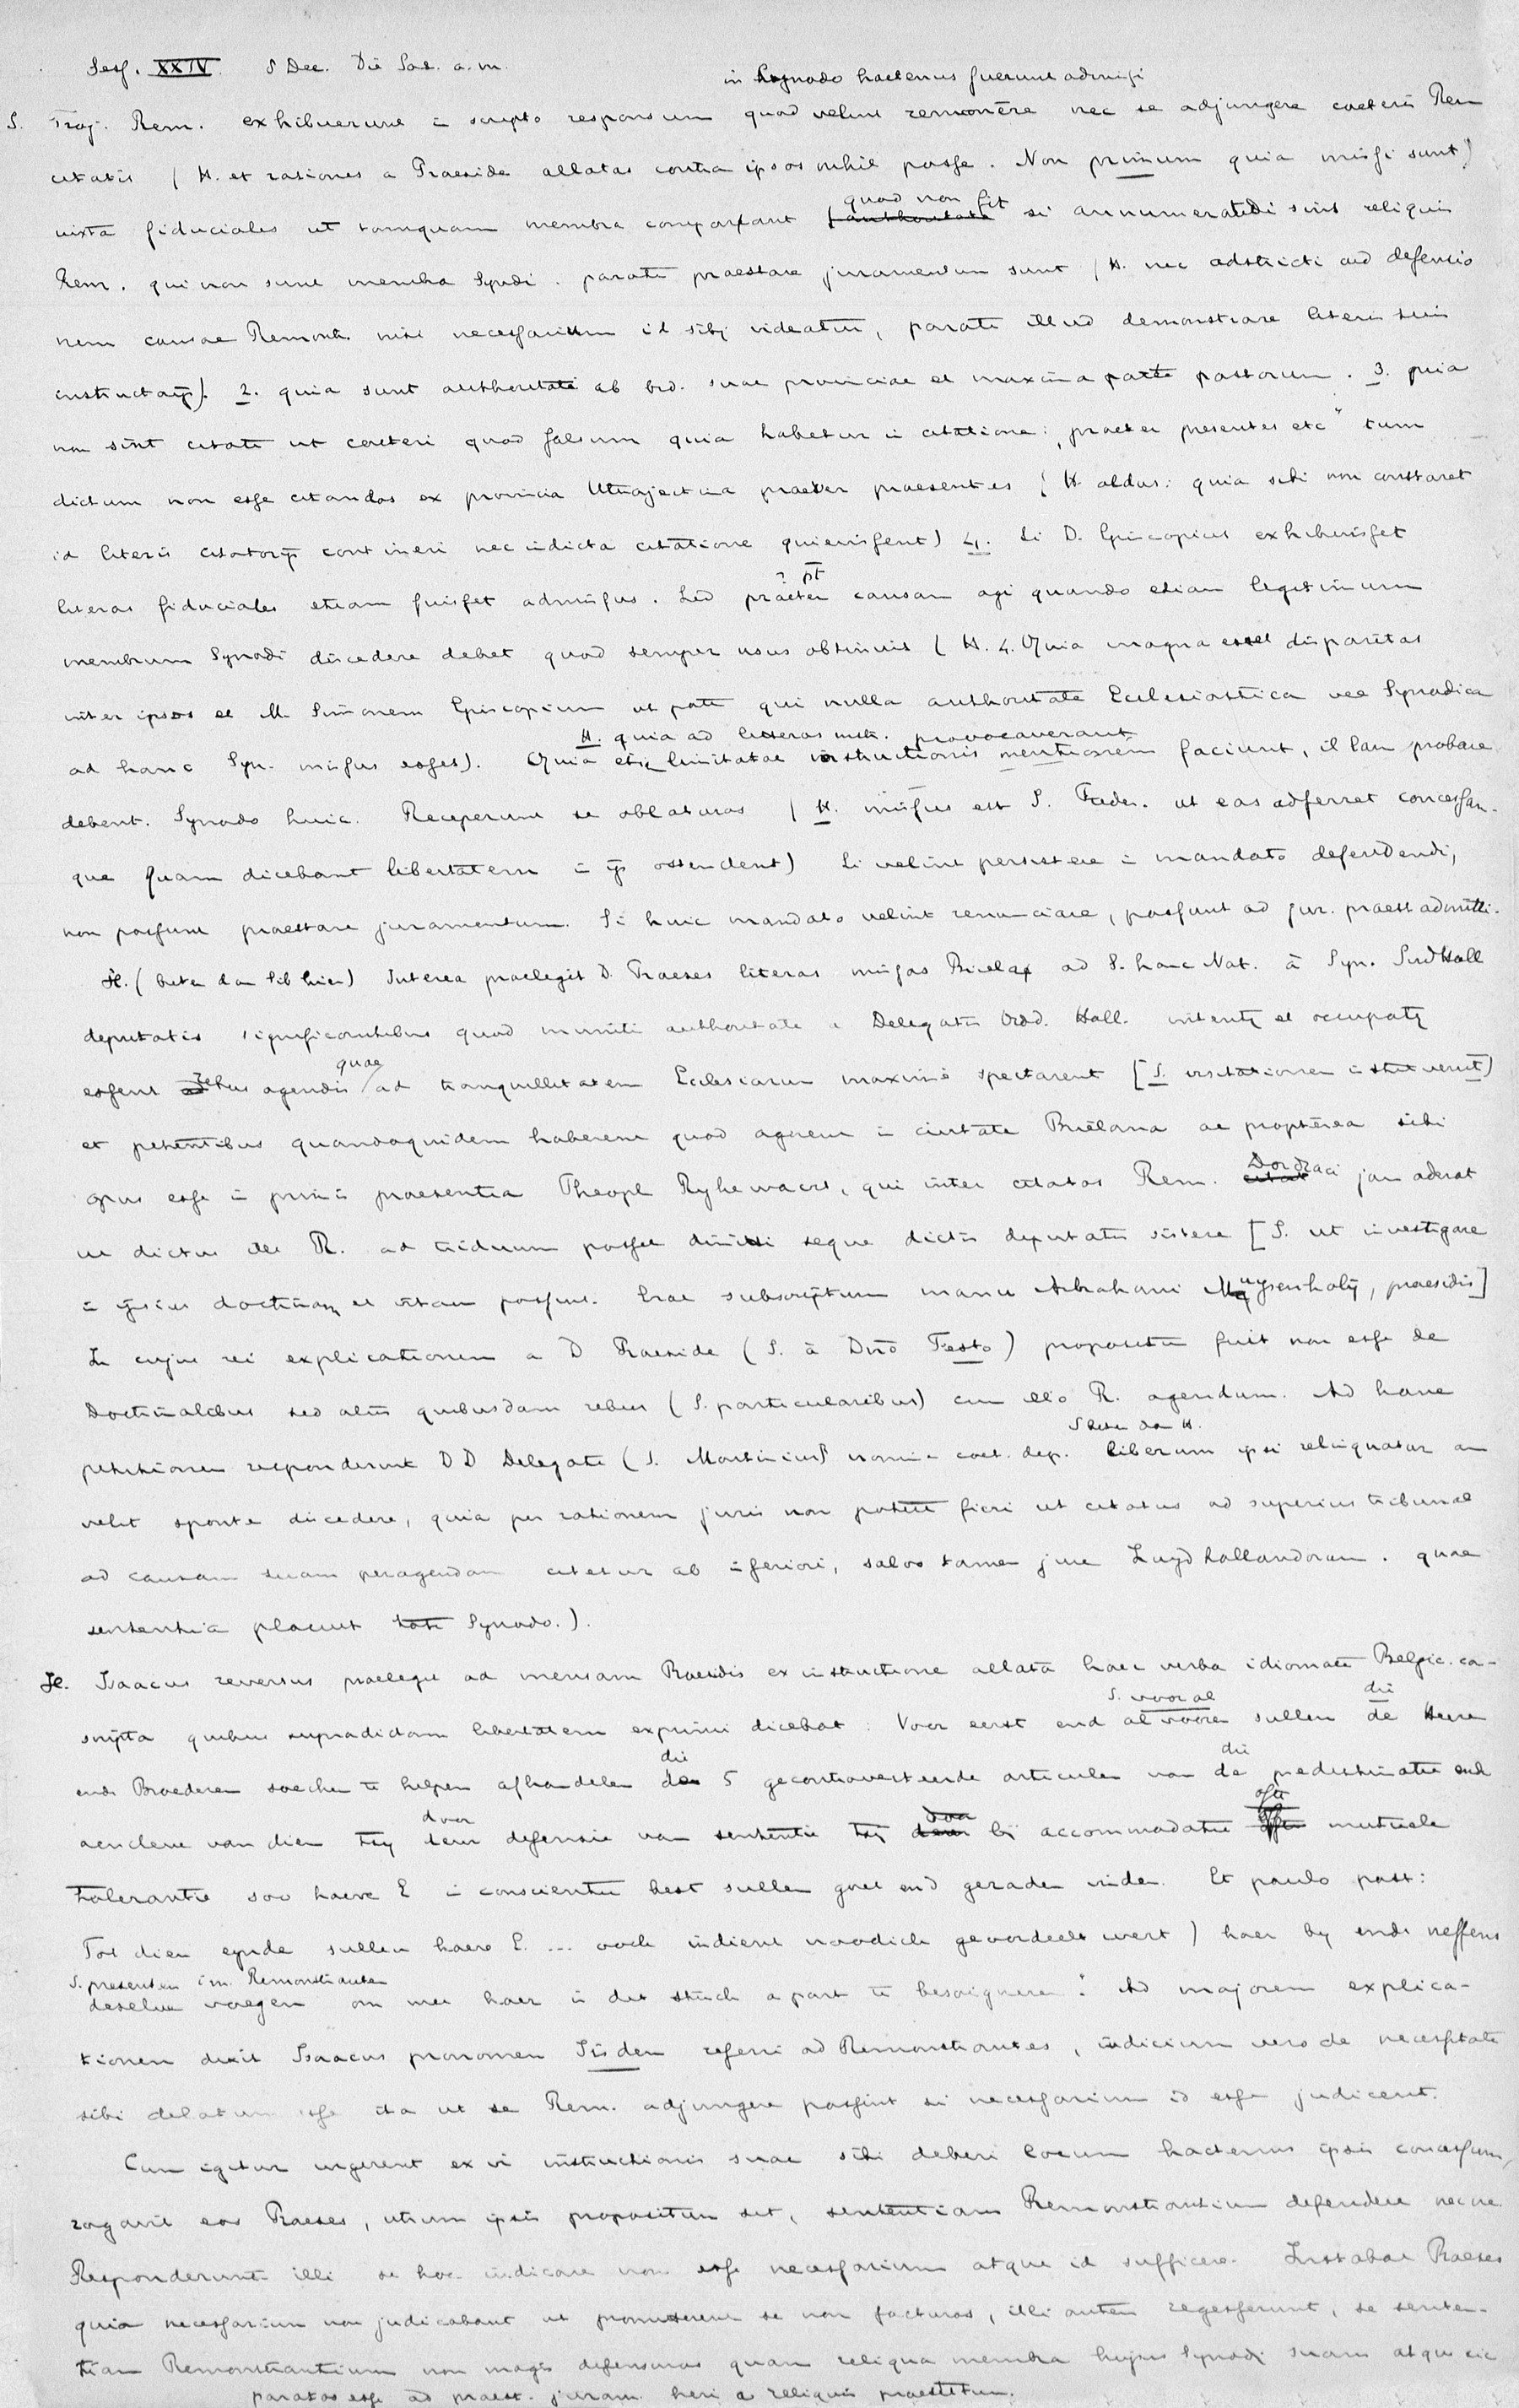 Sess. XXIV. 8 Dec. Die Sat. a.m.
in Synodo hactenus fuerunt admissi
S. Traj. Rem. exhibuerunt in scripto responsum quod velint remonēre nec se adjungere caeteris Rem
citatis (H. et rationes a Praeside allatas contra ipsos nihil posse. Non primum quia missi sunt)
quod non fit
iuxta fiduciales ut tamquam membra compareant si annumerandi sint reliquis
Rem. qui non sunt membra Synodi. parati praestare juramentum sunt (H. nec adstricti ad defensio
nem causae Remonstr. nisi necessarium id sibi videatur, parati illud demonstrare literis suis
instructoriis). 2. quia sunt authoritate ab Ord. suae provinciae et maxima parte pastorum. 3. quia
non sint citati ut caeteri quod falsum quia habetur in citatione: "praeter presentes etc" tum
dictum non esse citandos ex provincia Ultrajectina praeter praesentes (H. aldus: quia sibi non constaret
id literis citatoriis contineri nec indicta citatione quievissent) 4. Si D. Episcopius exhibuisset
? pt
literas fiduciales etiam fuisset admissus. Sed praeter causam agi quando etiam legitimum
membrum Synodi discedere debet quod semper usus obtinuit (H. 4. Quia magna esset disparitas
inter ipsos et M. Simonem Episcopium ut pote qui nulla authoritate Ecclesiastica vel Synodica
H. quia ad literas instr. provocaverant
ad hanc Syn. missus esset). Quia etiam limitatae instructionis mentionem faciunt, illam probare
debent. Synodo huic. Receperunt se oblaturos (H. missus est I. Frider. ut eas adferret concessam-
que quam dicebant libertatem in iis ostendent) Si velint persistere in mandato defendendi,
non possunt praestare juramentum. Si huic mandato velint renunciare, possunt ad jur. praest. admitti.
H. (beter dan Sib hier) Interea praelegit D. Praeses literas missas Brielae ad S. hanc Nat. à Syn. Sud Holl
deputatis significantibus quod muniti authoritate a Delegatis Ordd. Holl. intenti et occupati
quae
essent rebus agendis ad tranquillitatem Ecclesiarum maximè spectarent [S. visitationem instituerunt)
et petentibus quandoquidem haberent quod agerent in civitate Brielana ac propterea sibi
Dordraci
opus esse in primis praesentia Theoph Ryckewaert, qui inter citatos Rem. jam aderat
ut dictus ille R. ad triduum posset dimitti seque dictis deputatis sistere [S. ut investigare
in ipsius doctrinam et vitam possint. Erat subscriptum manu Abrahami Muysenholij, praesidis]
In cujus rei explicationem a D Praeside (S. à Dno Festo) propositum fuit non esse de
Doctrinalibus sed aliis quibusdam rebus (S. particularibus) cum illo R. agendum. Ad hanc
S beter dan H.
petitionem responderunt DD Delegati (S. Martinius nomine caet. dep. liberum ipsi relinquatur an
velit sponte discedere, quia per rationem juris non potest fieri ut citatus ad superius tribunal
ad causam suam peragendam citetur ab inferiori, salvo tamen jure Zuyd hollandorum. quae
sententia placuit toti Synodo.).
H. Isaacus reversus praelegit ad mensam Praesidis ex instructione allata haec verba idiomate Belgic. ca-
S. voor al die
scripta quibus supradictam libertatem exprimi dicebat: Voor eerst end al voren sullen de Heere
die die
ende Broederen soecken te helpen afhandelen de 5 gecontroverteerde articulen van de predestinatie end
door ofte
aencleve van dien tsy defensie van sententie tsy bij accommodatie mutuele
tolerantie soo haere E in conscientie best sullen goet end geraden vinden. Et paulo post:
Tot dien eynde sullen haere E. ... oock indient noodich geoordeelt wert) haer by ende neffens
S. presenten im. Remonstranten
deselve voegen om met haer in dit stuck apart te besoigneren". Ad majorem explica-
tionem dixit Isaacus pronomen Iisdem referri ad Remonstrantes, iudicium vero de necessitate
sibi delatum esse ita ut se Rem. adjungere possint si necessarium id esse judicent.
Cum igitur urgerent ex vi instructionis suae sibi deberi locum hactenus ipsis concessum,
rogavit eos Praeses, utrum ipsis propositum sit, sententiam Remonstrantium defendere nec ne
Responderunt illi se hoc indicare non esse necessarium atque id sufficere. Instabat Praeses
quia necessarium non judicabant ut promitterent se non facturos, illi autem regesserunt, se senten-
tiam Remonstrantium non magis defensuros quam reliqua membra hujus Synodi suam atque sic
paratos esse ad praest. juram. heri a reliquis praestitum.